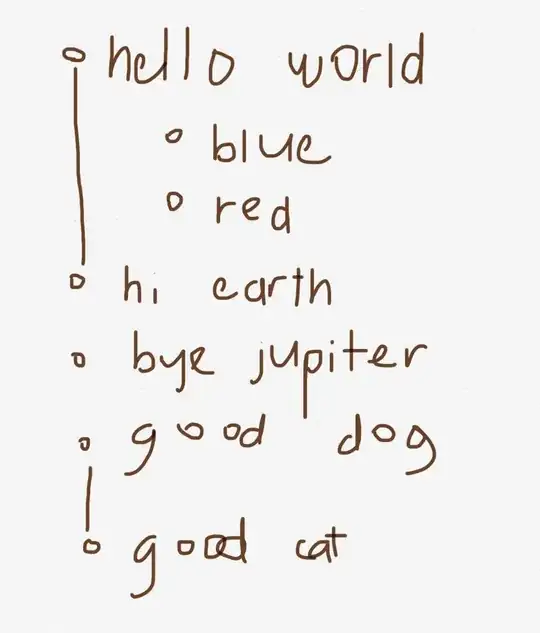 hello world
blue
red
hi earth
bye jupiter
good dog
good cat